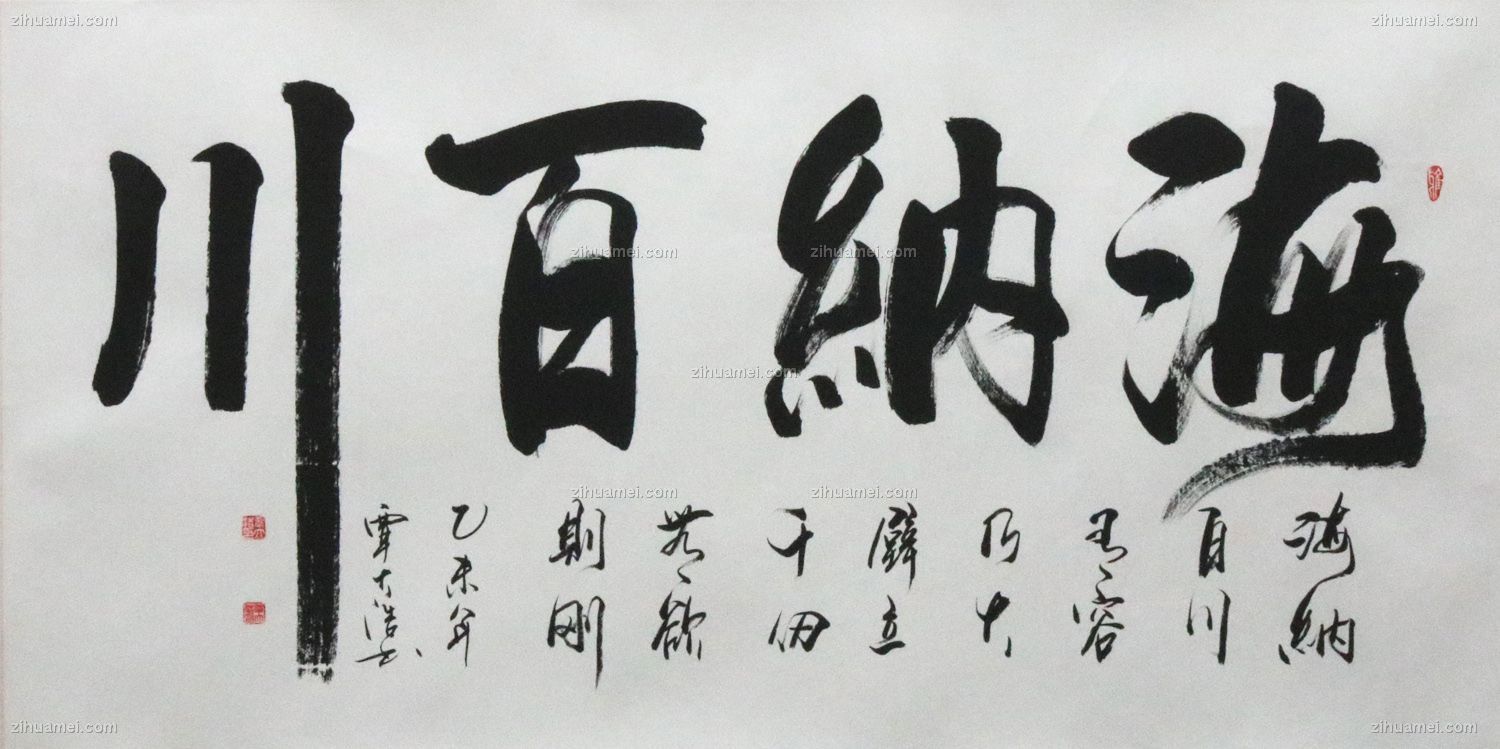 海納百川
海納
百川
有容
乃大
壁立
千仞
無欲
則剛
乙未年
覃大浩書
zihuamei.com
zihuamei.com
zihuamei.com
zihuamei.com
zihuamei.com
zihuamei.com
zihuamei.com
zihuamei.com
zihuamei.com
zihuamei.com